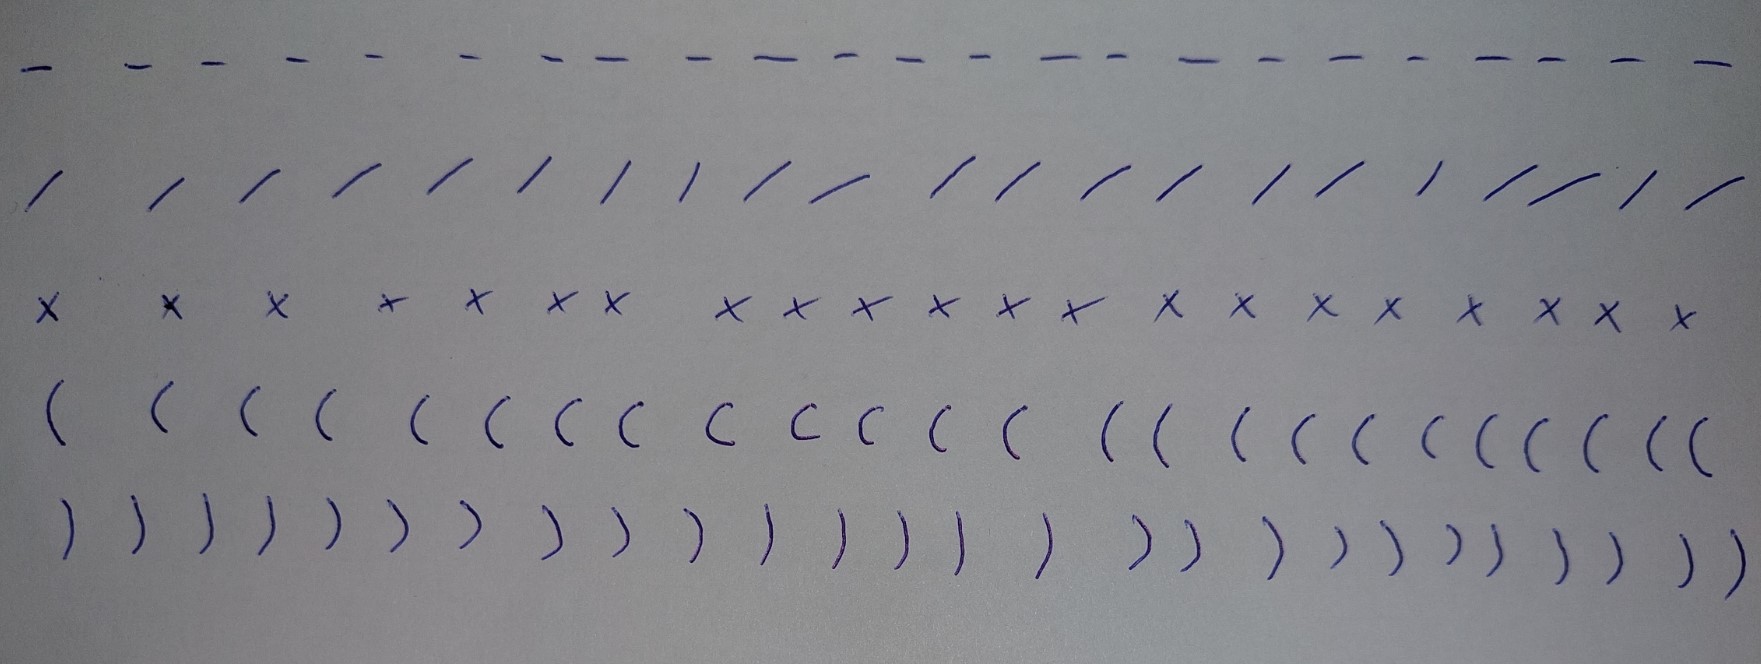 - - - - - - - - - - - - - - - - - - - - - - -
/ / / / / / / / / / / / / / / / / / / / /
x x x x x x x x x x x x x x x x x x x x x
( ( ( ( ( ( ( ( ( ( ( ( ( ( ( ( ( ( ( ( ( ( ( (
) ) ) ) ) ) ) ) ) ) ) ) ) ) ) ) ) ) ) ) ) ) ) ) ) )